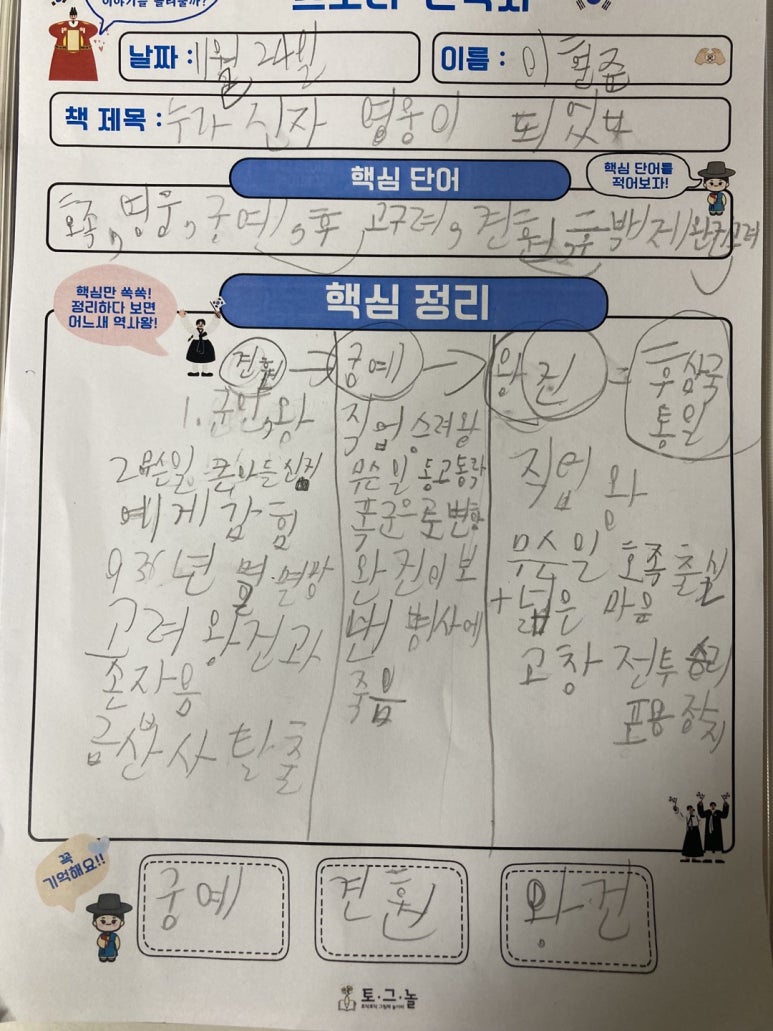 날짜 : 11월 24일
이름 : 이현준
책 제목 : 누가 진자 영웅이 되었나
핵심 단어
핵심 단어를
적어보자!
호족, 영웅, 궁예, 후 고구려, 견훤, 후 백제 왕건 고려
핵심만 쏙쏙!
정리하다 보면
어느새 역사왕!
핵심 정리
견훤 → 궁예 → 왕건 = 후삼국
통일
1. 군인, 왕
2 무슨일 큰아들 신검
에게 갇힘
936년 멸·멸망
고려 왕건과
손자음
금산사 탈출
직업 승려왕
무슨일 동고동락
폭군으로 변함
왕건이 보
낸 병사에
죽음
직업 왕
무슨일 호족 출신
+ 넓은 마음
고창 전투 승리
포용 정치
꼭
기억해요!!
궁예
견훤
왕건
토·그·놀